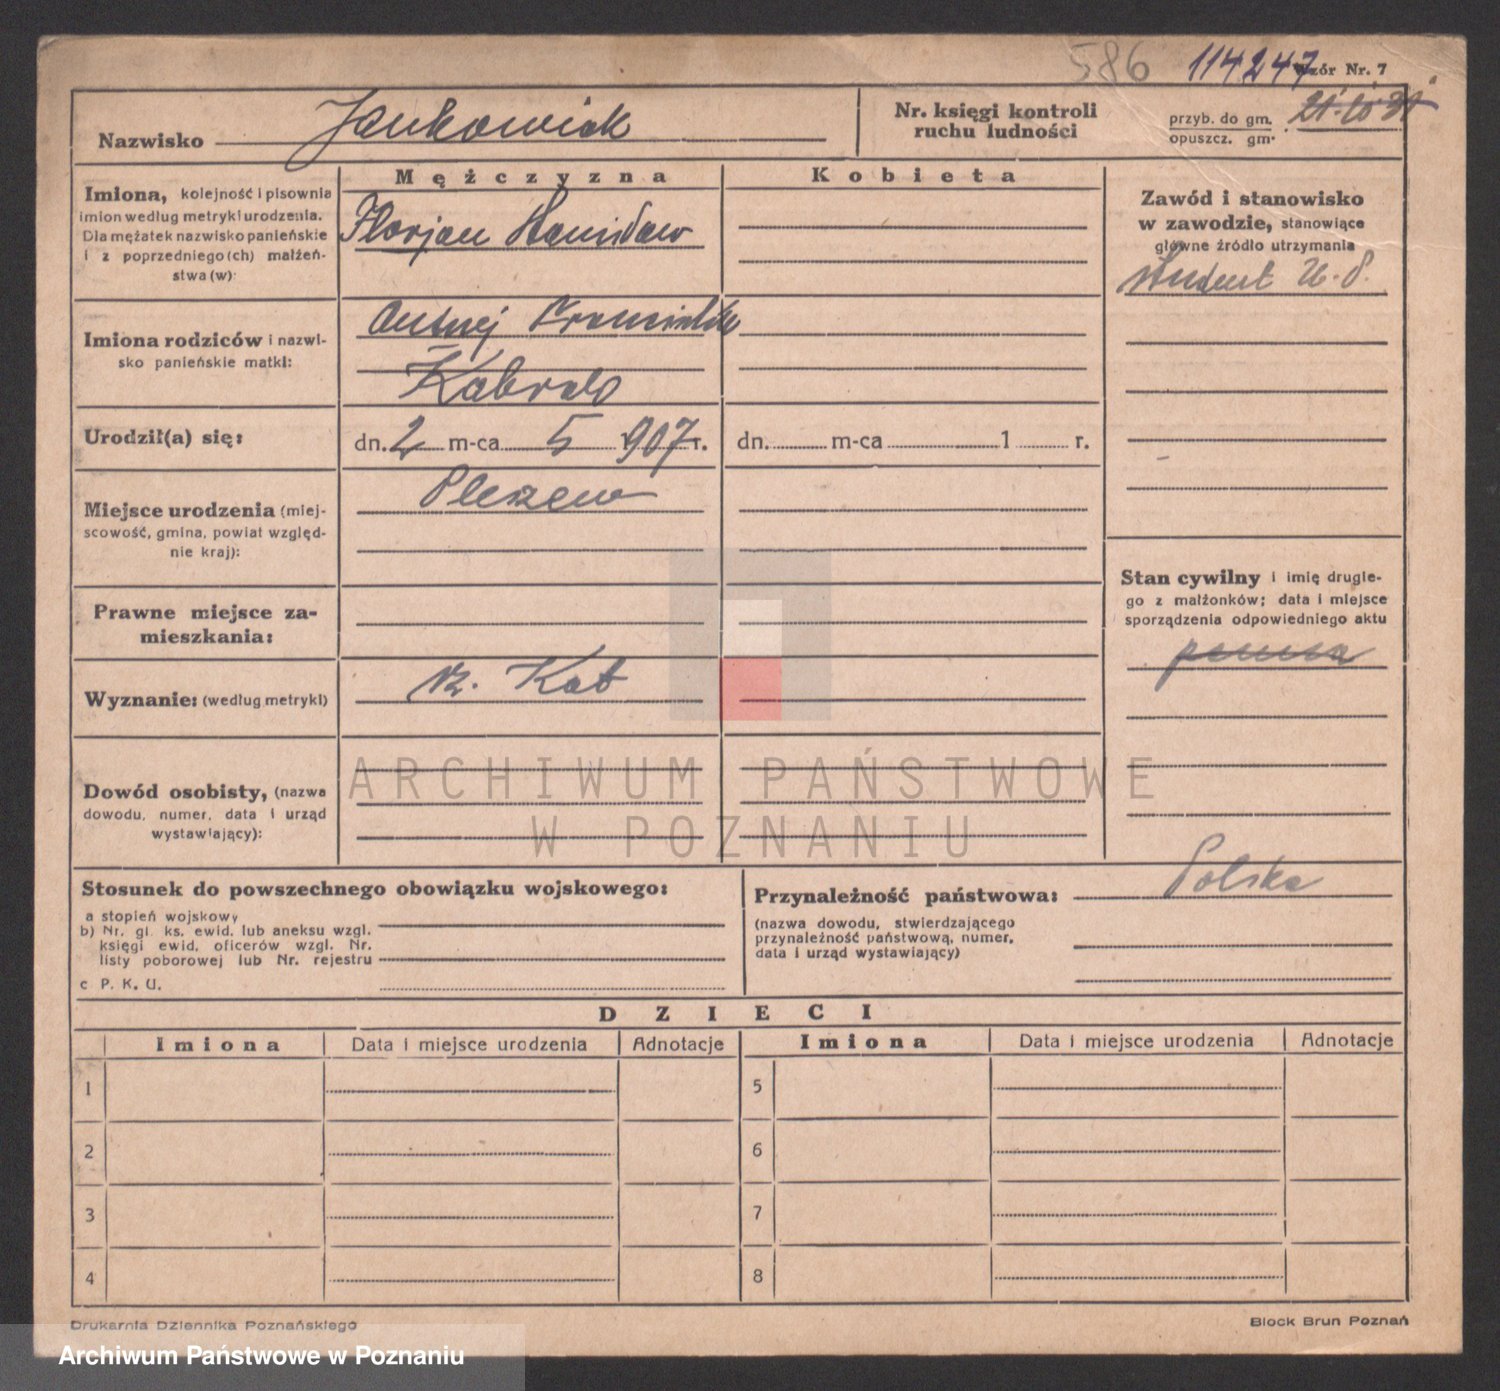 586 114247 Wzór Nr. 7
Nazwisko Jankowiak
Nr. księgi kontroli
ruchu ludności
przyb. do gm. 21.10.31
opuszcz. gm.
Mężczyzna Kobieta
Imiona, kolejność i pisownia
imion według metryki urodzenia.
Dla mężatek nazwisko panieńskie
i z poprzedniego(ch) małżeń-
stwa(w):
Florjan Stanisław
Zawód i stanowisko
w zawodzie, stanowiące
główne źródło utrzymania
student U. P.
Imiona rodziców i nazwi-
sko panieńskie matki:
Kabrala
Urodził(a) się:
dn. 2 m-ca 5 1907 r.
dn. m-ca 1 r.
Miejsce urodzenia (miej-
scowość, gmina, powiat względ-
nie kraj):
Pleszew
Prawne miejsce za-
mieszkania:
Stan cywilny i imię drugie-
go z małżonków; data i miejsce
sporządzenia odpowiedniego aktu
Wyznanie: (według metryki)
rz. Kat
Dowód osobisty, (nazwa
dowodu, numer, data i urząd
wystawiający):
ARCHIWUM PAŃSTWOWE
W POZNANIU
Stosunek do powszechnego obowiązku wojskowego:
a stopień wojskowy
b) Nr. gl. ks. ewid. lub aneksu wzgl.
księgi ewid. oficerów wzgl. Nr.
listy poborowej lub Nr. rejestru
c P. K. U.
Przynależność państwowa: Polska
(nazwa dowodu, stwierdzającego
przynależność państwową, numer,
data i urząd wystawiający)
DZIECI
Imiona Data i miejsce urodzenia Adnotacje Imiona Data i miejsce urodzenia Adnotacje
1 5
2 6
3 7
4 8
Drukarnia Dziennika Poznańskiego
Block Brun Poznań
Archiwum Państwowe w Poznaniu